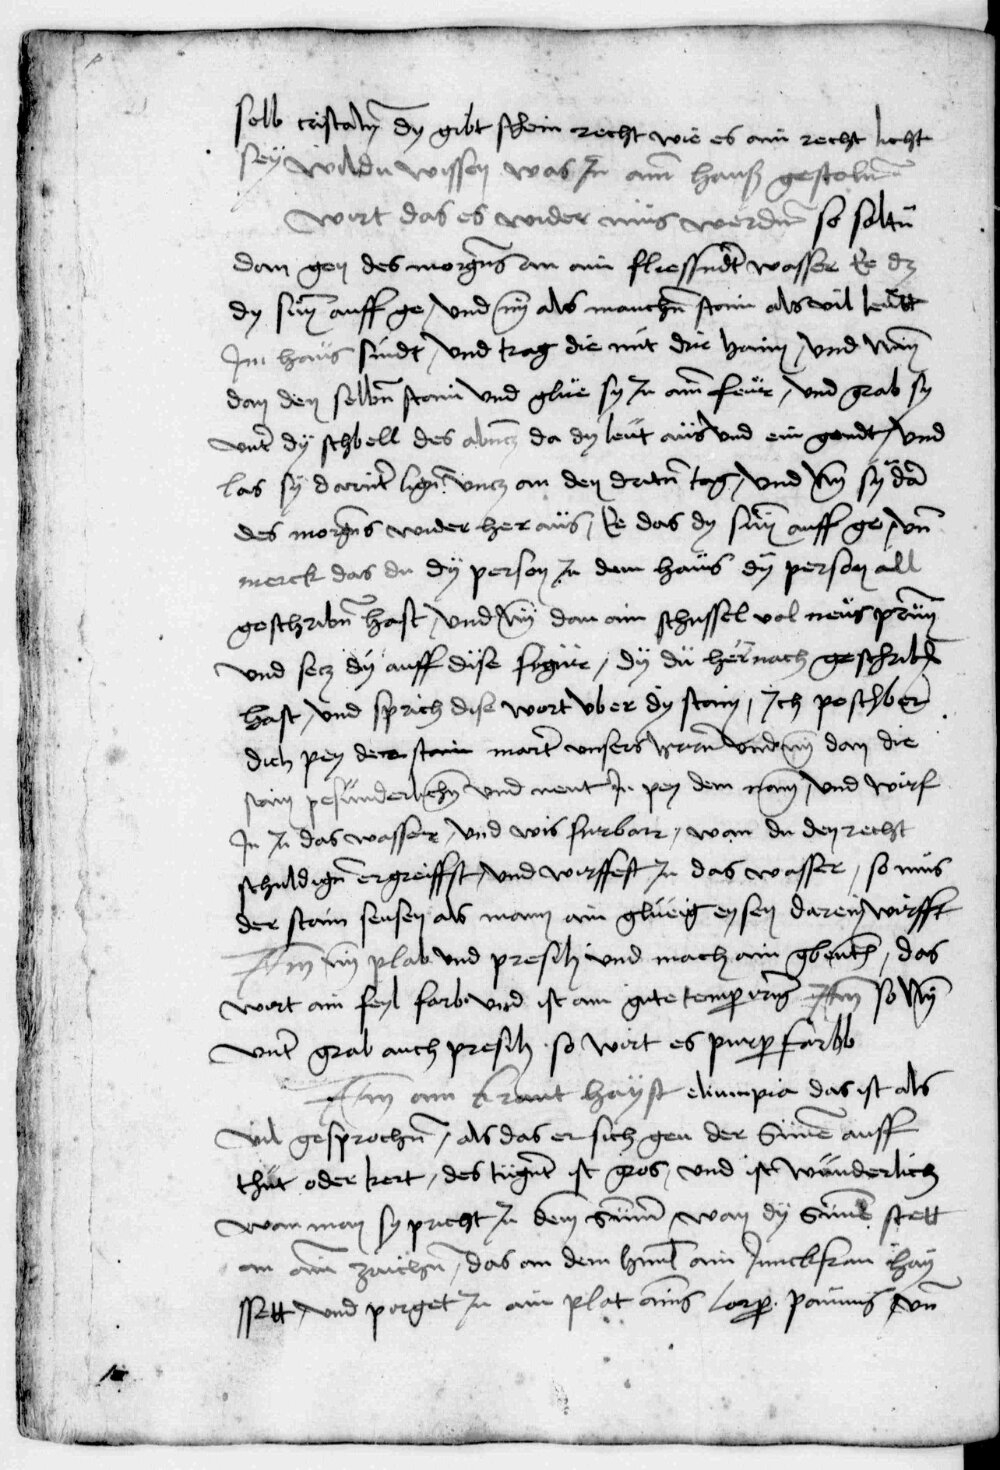 selb cristalln̄ dy gibt schein recht wie es ain recht licht
sey wildu wissen was In aim̄ hauß gestolen̄
wirt das es wider mus werden̄ so soltu
dan gen des morgens an ain fliessendt wasser Ee dz
dy sun̄ auff ge / und nym̄ als manchen̄ stain als vil leutt
Im haus sindt / und trag die mit dir haim / und nym̄
dan den selben̄ stain und glue sy In aim̄ feur / und grab sy
unter dy schbell des abentz da dy leut aus und ein gendt / und
las sy darunter ligen̄ untz an den dritn̄ tag / und nym̄ sy dan̄
des morgens wider her aus / Ee das dy sun̄ auff ge / un̄
merck das du dy person In dem haus dy person all
geschribn̄ hast / und nym̄ dan ain schussel vol neus prun̄
und setz dy auff dise figur / dy du hernach geschribn̄
hast / und sprich dise wort uber dy stain / Ich peschber
dich pey der stain marter unsers herrn̄ und nym̄ dan die
stain pesunderlichn̄ und nent In pey dem nam̄ / und wirf
In In das wasser / und wis furbarr / wan du den recht
schuldign̄ ergreiffst / und wirffest In das wasser / so mus
der stain seusen als wann ain glueig eysen darein wirfft
Itm̄ nym̄ plab und presilg und mach ain gbench / das
wirt ain feyl farb und ist ain gute temperirung Itm̄ so nym̄
unter grab auch presilg so wirt es purper farbb
Itm̄ ain kraut hayst eliumpia das ist als
vil gesprochn̄ / als das er sich gen der Sunn̄e auff
thut oder kert / des tugent ist gros / und ist wunderlich
wan man sy pricht In dem sumer / wan dy Sunn̄e stett
an aim̄ zaichn̄ / das an dem himl ain Junckfrau hay
ssett / und porget In ain plat ains lorper paumes / un̄